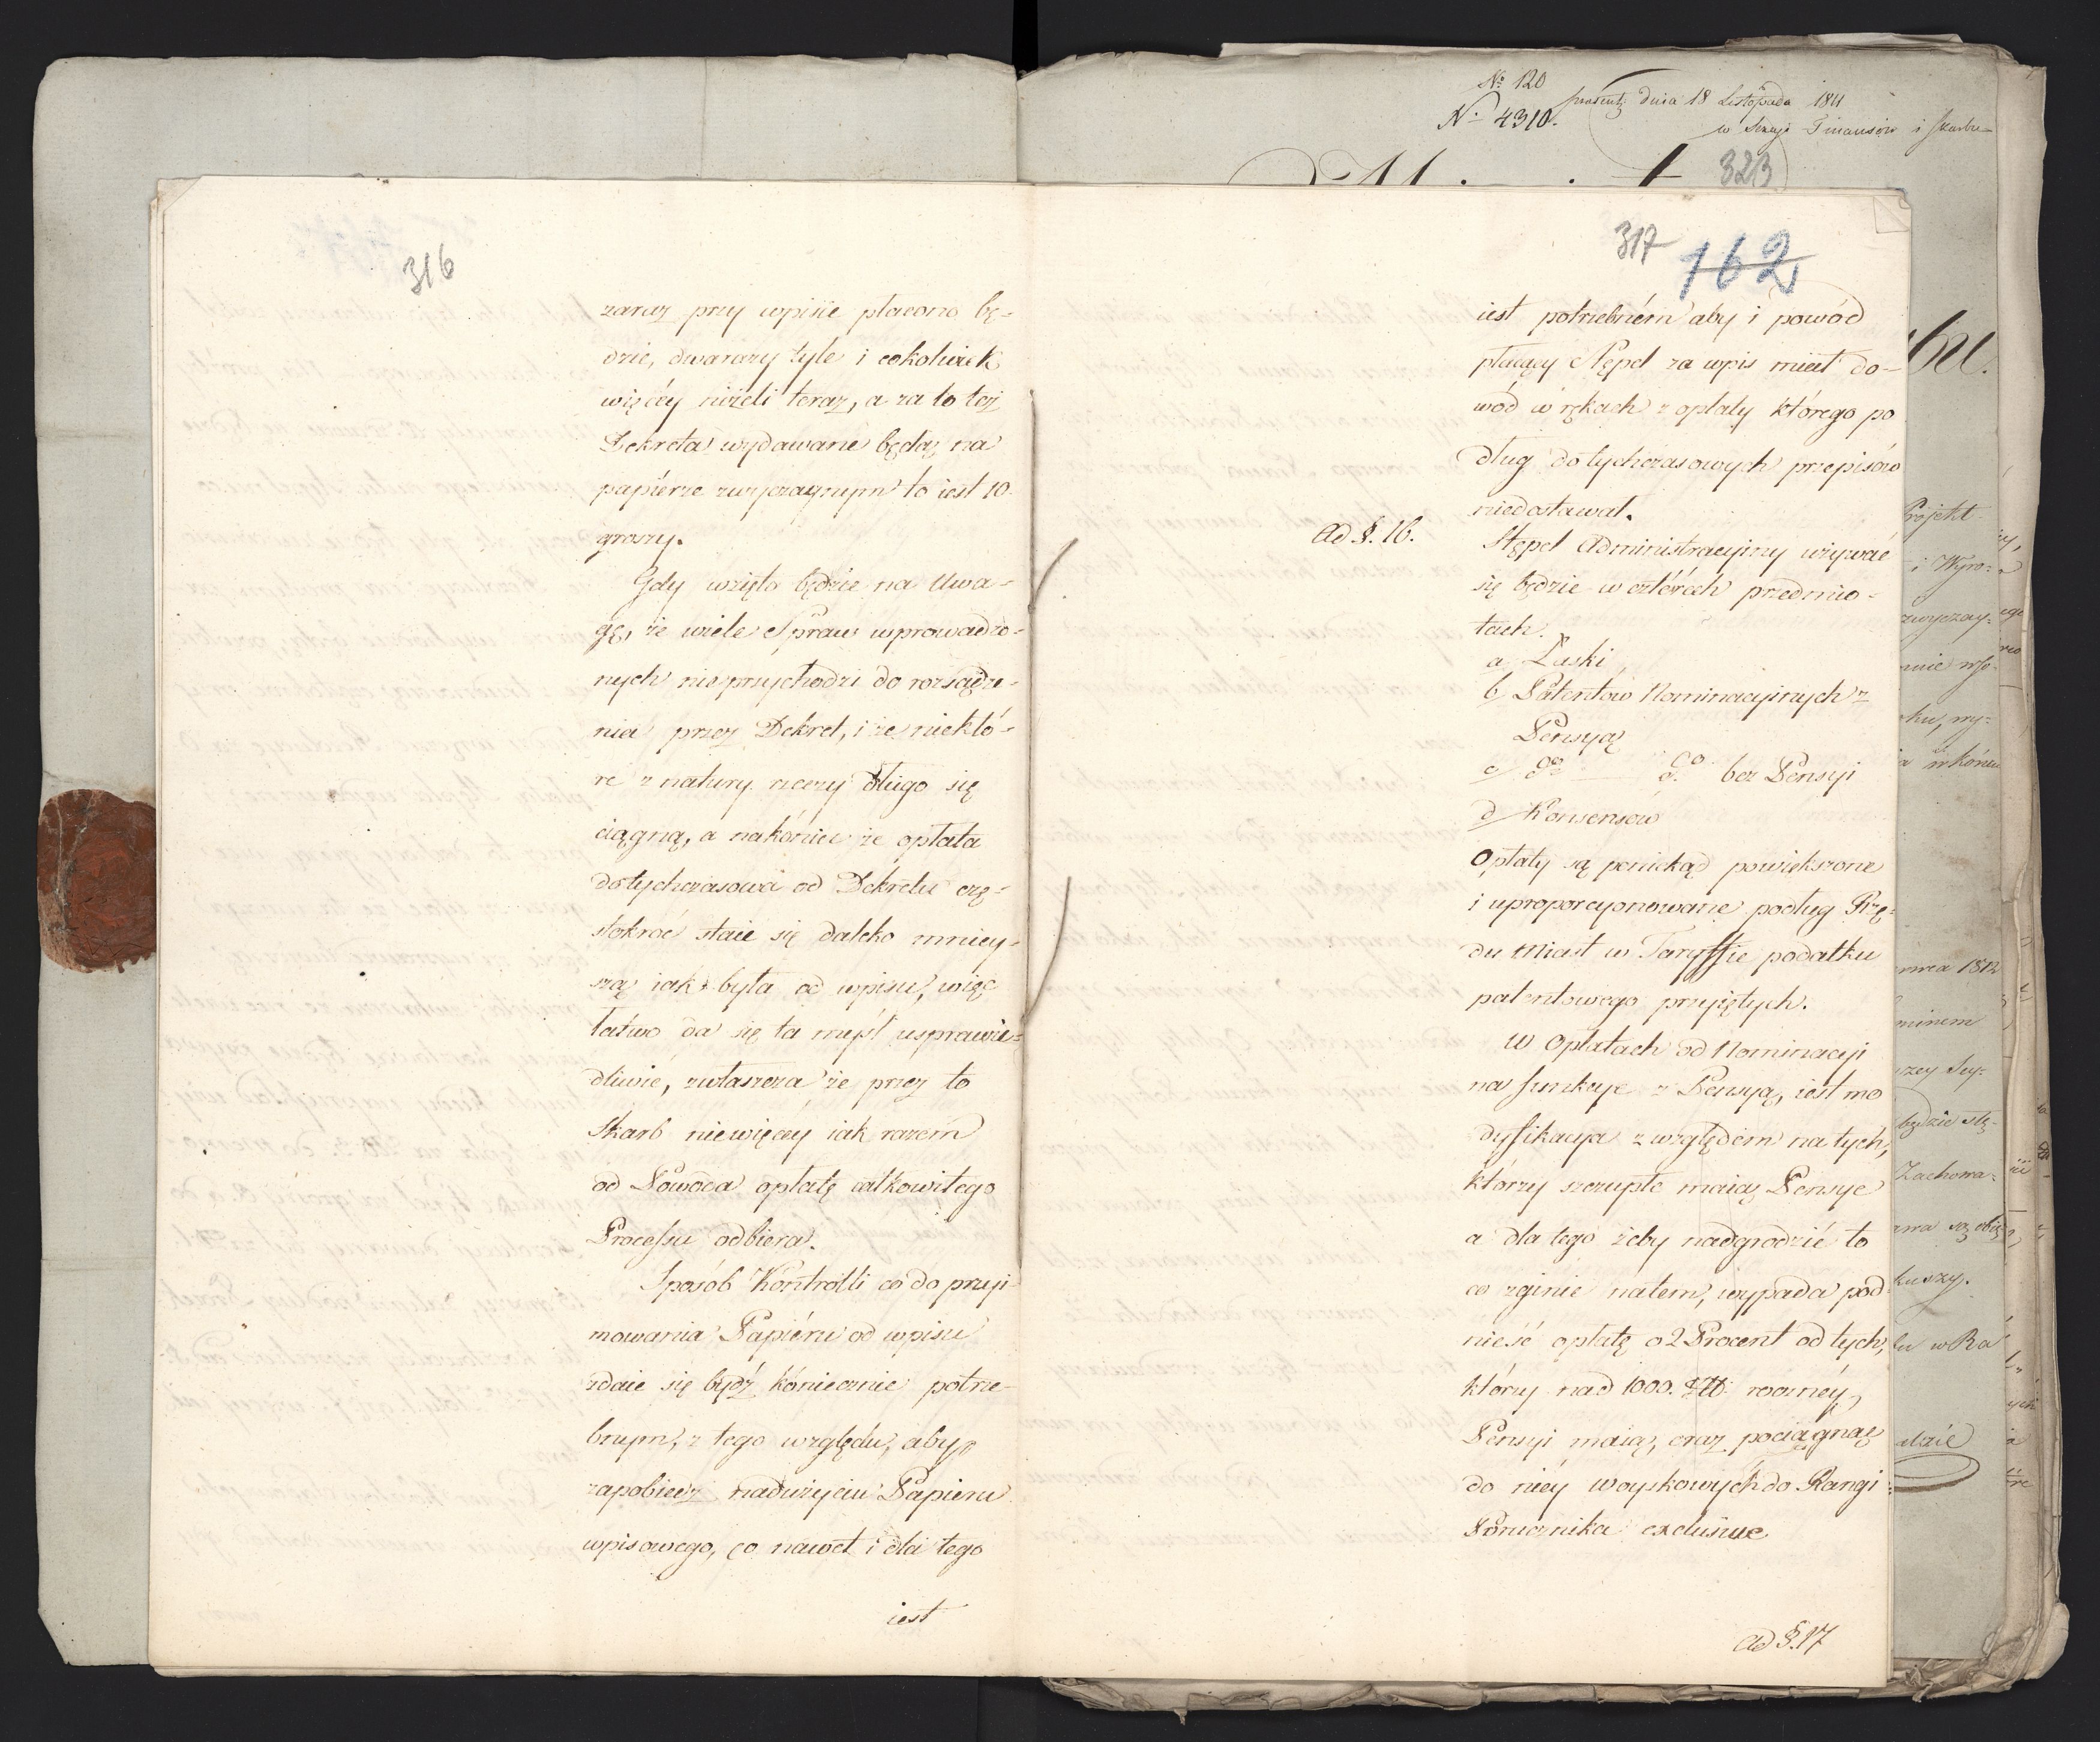 316
zaraz przy wpisie płacono bę-
dzie, dwa razy tyle i cokolwiek
więcéy niżeli teraz, a za to też
Dekreta wydawane będą na
papiérze zwyczaynym to iest 10
groszy.
Gdy wzięto będzie na Uwa-
gę, że wiele Spraw wprowadzo-
nych nieprzychodzi do rozsądze-
nia przez Dekret, i że niektó-
re z natury rzeczy długo się
ciągną, a nakóniec że opłata
dotychczasowa od Dekretu czę-
stokroć staie się daleko mniey-
szą iak była od wpisu, więc
łatwo da się ta myśl usprawie-
dliwić, zwłaszcza że przez to
Skarb niewięcéy iak razem
od Powoda opłatę całkowitego
Processu odbiera.
Sposób Kontrolli co do przyi-
mowania Papiéru od wpisu
zdaie się bydź koniecznie potrze-
bnym, z tego względu, aby
zapobiedz nadużyciu Papieru
wpisowego, co nawet i dla tego
iest
№ 120
№ 4310.
praesent: dnia 18 Listopada 1811
w Sekcyi Finansów i Skarbu
323
317
162
iest potrzebném aby i powód
płacący Stępel za wpis miał do-
wód w rękach z opłaty którego po
dług dotychczasowych przepisów
niedostawał.
Ad §. 16.
Stępel Administracyiny używać
się będzie w cztérech przedmio-
tach.
a Łaski,
b Patentów Nominacyinych z
Pensyą
c do do bez Pensyi
d Konsensow
Opłaty są poniekąd powiększone
i uproporcyonowane podług Rzę-
du Miast w Taryffie podatku
patentowego przyiętych.
W Opłatach od Nominacyi
na funkcye z Pensyą, iest mo
dyfikacya z względem na tych,
którzy szczupłe maią Pensye
a dla tego żeby nadgrodzić to
co zginie natem, wypada pod
nieść opłatę o 2 Procent od tych,
którzy nad 1000. Zł roczney
Pensyi maią, oraz pociągnąć
do niéy woyskowych do Rangi
Porucznika exclusive
Ad §. 17
Projekt
i Wyro-
zwyczay-
nca 1812
minem
będzie stę-
Zachowa-
kuszy.